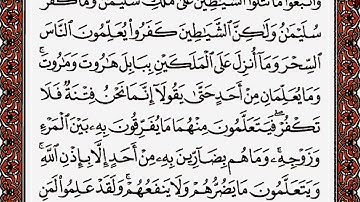 وَٱتَّبَعُوا۟ مَا تَتْلُوا۟ ٱلشَّيَـٰطِينُ عَلَىٰ مُلْكِ سُلَيْمَـٰنَ وَمَا كَفَرَ
سُلَيْمَـٰنُ وَلَـٰكِنَّ ٱلشَّيَـٰطِينَ كَفَرُوا۟ يُعَلِّمُونَ ٱلنَّاسَ
ٱلسِّحْرَ وَمَآ أُنزِلَ عَلَى ٱلْمَلَكَيْنِ بِبَابِلَ هَـٰرُوتَ وَمَـٰرُوتَ ۚ
وَمَا يُعَلِّمَانِ مِنْ أَحَدٍ حَتَّىٰ يَقُولَآ إِنَّمَا نَحْنُ فِتْنَةٌ فَلَا
تَكْفُرْ ۖ فَيَتَعَلَّمُونَ مِنْهُمَا مَا يُفَرِّقُونَ بِهِۦ بَيْنَ ٱلْمَرْءِ
وَزَوْجِهِۦ ۚ وَمَا هُم بِضَآرِّينَ بِهِۦ مِنْ أَحَدٍ إِلَّا بِإِذْنِ ٱللَّهِ ۚ
وَيَتَعَلَّمُونَ مَا يَضُرُّهُمْ وَلَا يَنفَعُهُمْ ۚ وَلَقَدْ عَلِمُوا۟ لَمَنِ